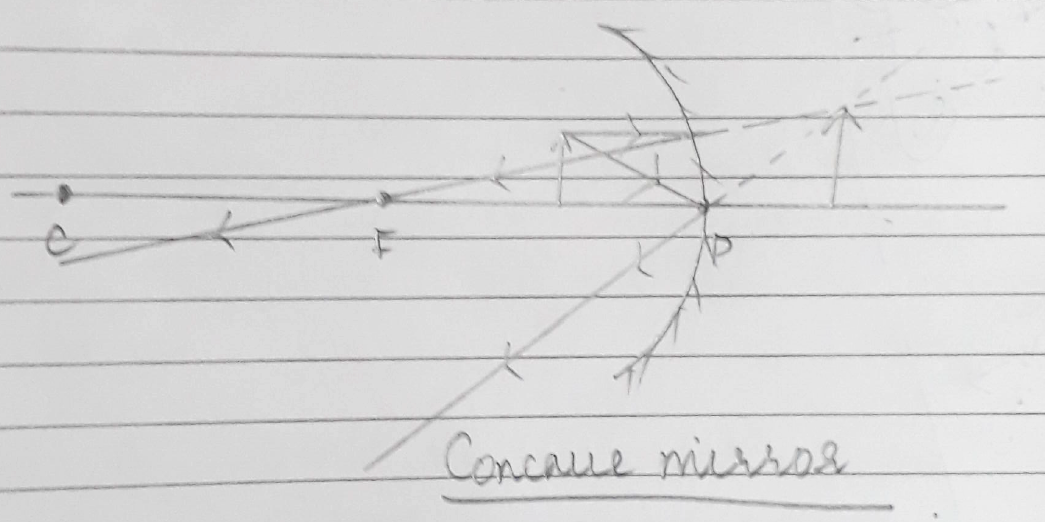 C F P
Concave mirror